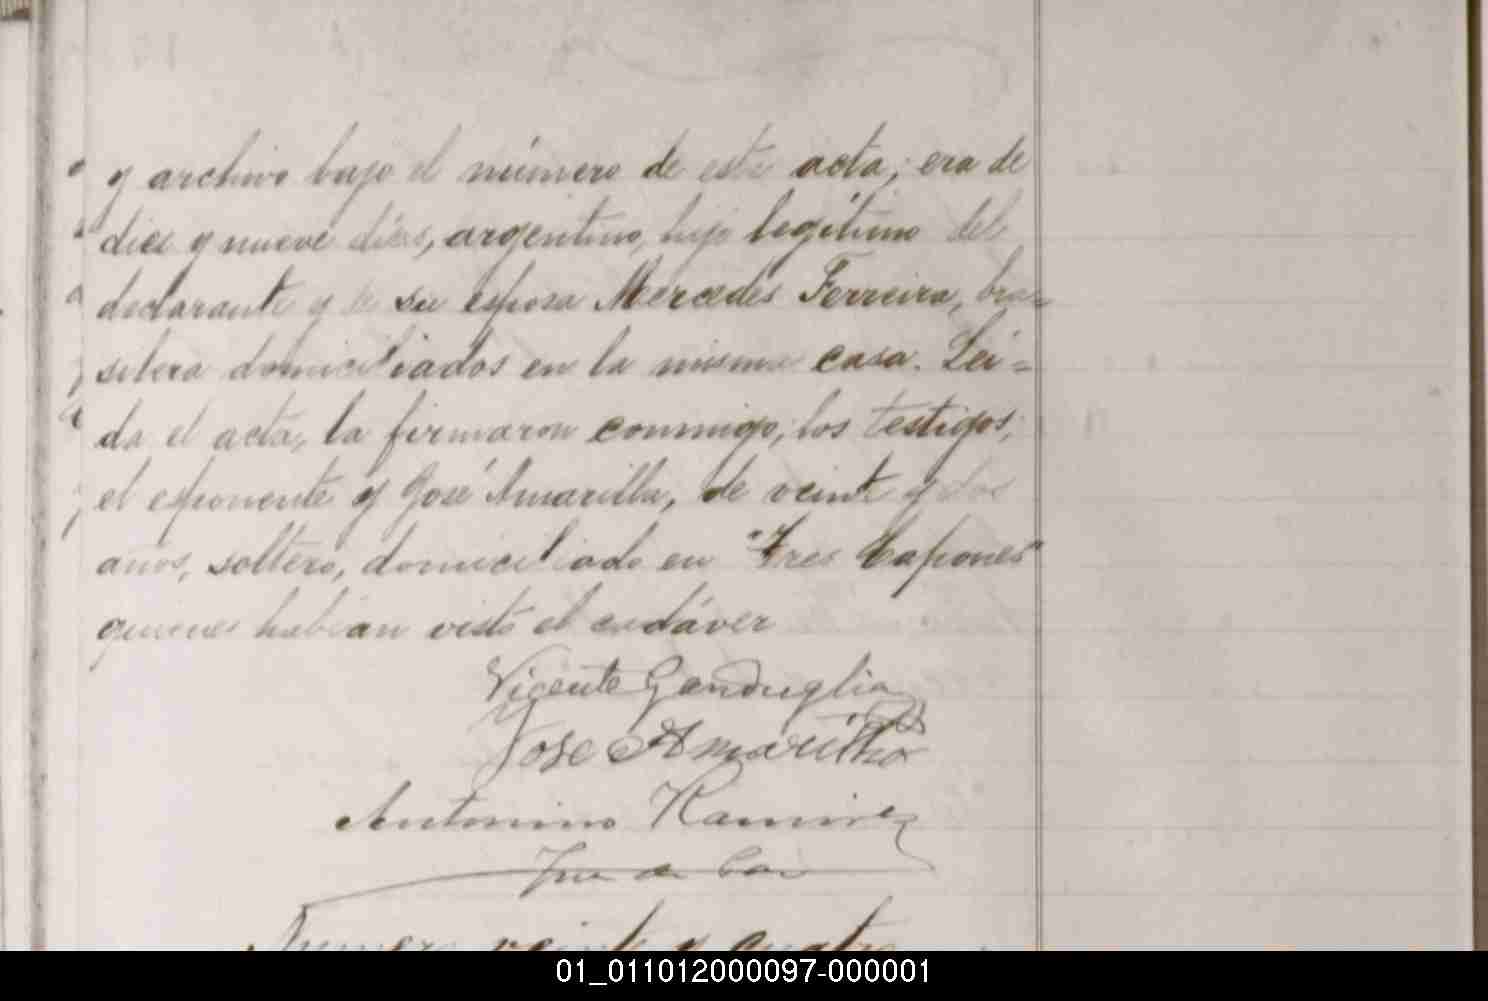 y archivo bajo el número de esta acta; era de
dies y nueve días, argentino, hijo legítimo del
declarante y de su esposa Mercedes Ferreira, bra=
silera domiciliados en la misma casa. Lei=
da el acta, la firmaron conmigo, los testigos,
el esponente y José Amarilla, de veinte y dos
años, soltero, domiciliado en "Tres Capones"
quienes habían visto el cadáver
Vicente Genduglia
Jose Amarilla
Antonino Ramirez
Juez de Paz
Numero veinte y cuatro
01_011012000097-000001